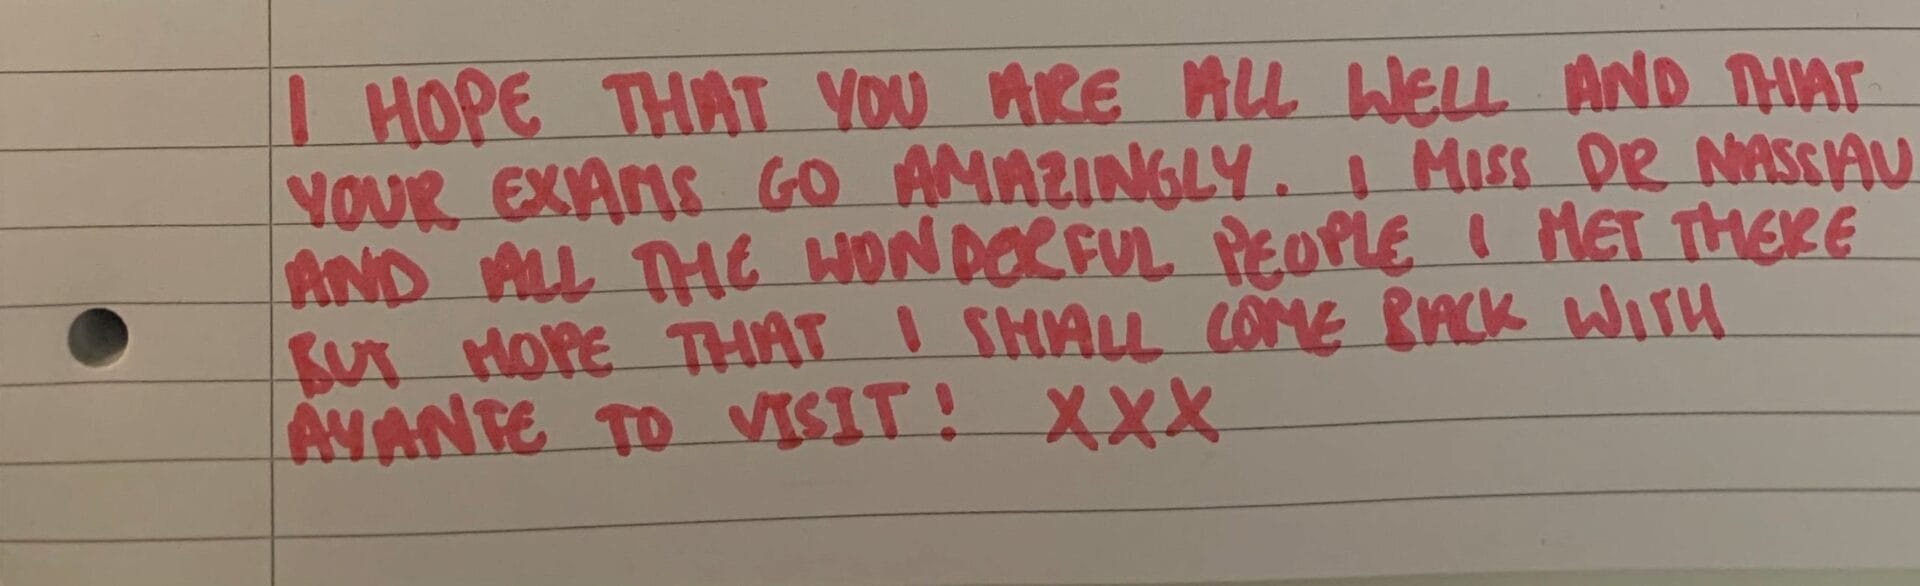 I HOPE THAT YOU ARE ALL WELL AND THAT
YOUR EXAMS GO AMAZINGLY. I MISS DR NASSAU
AND ALL THE WONDERFUL PEOPLE I MET THERE
BUT HOPE THAT I SHALL COME BACK WITH
AYANFE TO VISIT! XXX